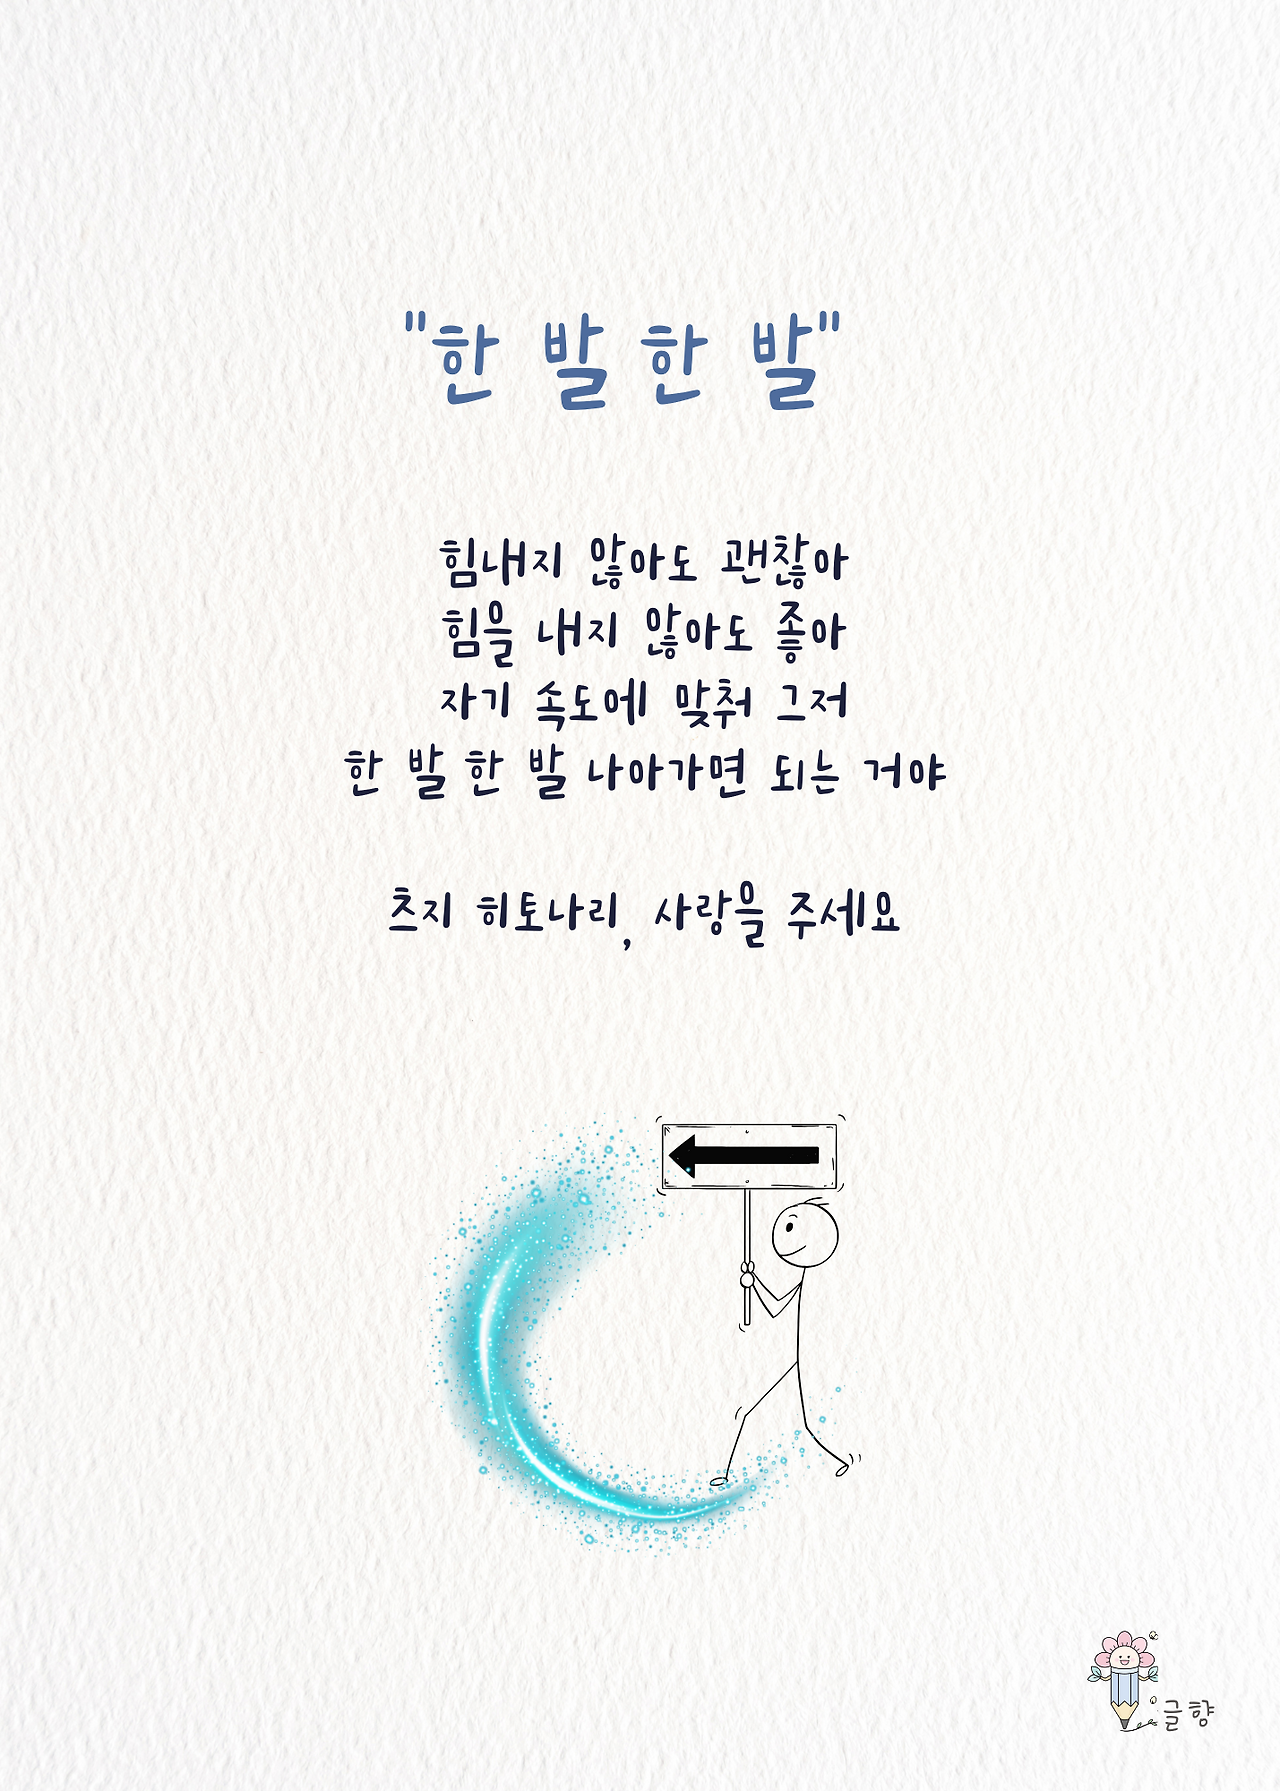 "한 발 한 발"
힘내지 않아도 괜찮아
힘을 내지 않아도 좋아
자기 속도에 맞춰 그저
한 발 한 발 나아가면 되는 거야
츠지 히토나리, 사랑을 주세요
글향